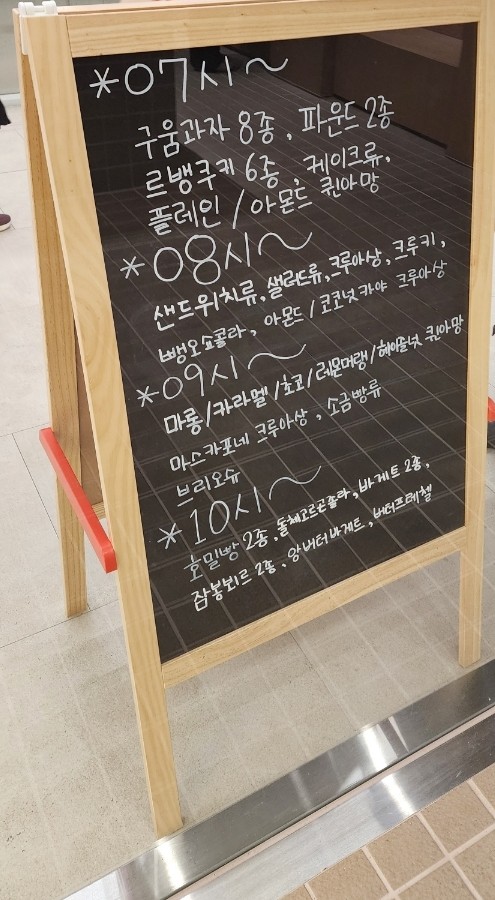 *07시~
구움과자 8종, 파운드 2종
르뱅쿠키 6종, 케이크류,
플레인 / 아몬드 퀸아망
*08시~
샌드위치류, 샐러드류, 크루아상, 크루키,
뺑오쇼콜라, 아몬드 / 코코넛카야 크루아상
*09시~
마롱/카라멜/초코/레몬머랭/헤이즐넛 퀸아망
마스카포네 크루아상, 소금빵류
브리오슈
*10시~
호밀빵 2종, 돌체고르곤졸라, 바게트 2종,
잠봉뵈르 2종, 앙버터바게트, 버터프레첼